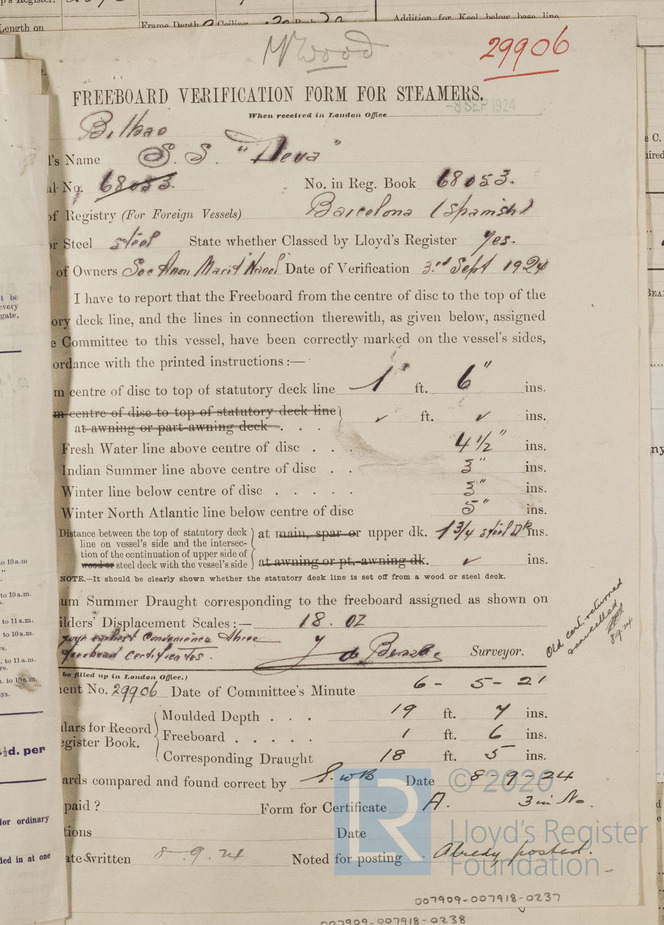 's Register.
Length on
Frame Depth
Ceiling
Addition for Keel below base line
Mr Wood
29906
FREEBOARD VERIFICATION FORM FOR STEAMERS.
-8 SEP 1924
When received in London Office
Bilbao
's Name S. S. "Deva"
No. 68053. No. in Reg. Book 68053.
of Registry (For Foreign Vessels) Barcelona (Spanish)
or Steel steel State whether Classed by Lloyd's Register Yes.
of Owners Soc Anon Marit Date of Verification 3rd Sept 1924
I have to report that the Freeboard from the centre of disc to the top of the
ory deck line, and the lines in connection therewith, as given below, assigned
e Committee to this vessel, have been correctly marked on the vessel's sides,
ordance with the printed instructions :—
m centre of disc to top of statutory deck line 1 ft. 6" ins.
m centre of disc to top of statutory deck line
at awning or part-awning deck . . . ✓ ft. ✓ ins.
Fresh Water line above centre of disc . . . 4 1/2" ins.
Indian Summer line above centre of disc . . 3" ins.
Winter line below centre of disc . . . . . 3" ins.
Winter North Atlantic line below centre of disc 5" ins.
Distance between the top of statutory deck
line on vessel's side and the intersec-
tion of the continuation of upper side of
wood or steel deck with the vessel's side
at main, spar or upper dk. 1 3/4 steel Dk ins.
at awning or pt. awning dk. ✓ ins.
NOTE.—It should be clearly shown whether the statutory deck line is set off from a wood or steel deck.
um Summer Draught corresponding to the freeboard assigned as shown on
ilders' Displacement Scales :— 18.02
your earliest convenience three
freeboard certificates.
Surveyor.
Old cert. returned
cancelled
8.9.24
be filled up in London Office.)
ent No. 29906 Date of Committee's Minute 6 - 5 - 21
lars for Record
egister Book.
Moulded Depth . . . 19 ft. 7 ins.
Freeboard . . . . . 1 ft. 6 ins.
Corresponding Draught 18 ft. 5 ins.
ards compared and found correct by Date 8-9-24
paid ? Form for Certificate A. 3 in No.
tions Date
ate written 8.9.24 Noted for posting Already posted.
© 2020
Lloyd's Register
Foundation
LR
007909-007918-0237
007909-007918-0238
to 10 a.m
to 10 a.m.
to 11 a.m
to 10 a.m.
to 11 a.m.
to 10 a.m.
d. per
for ordinary
ded in at one